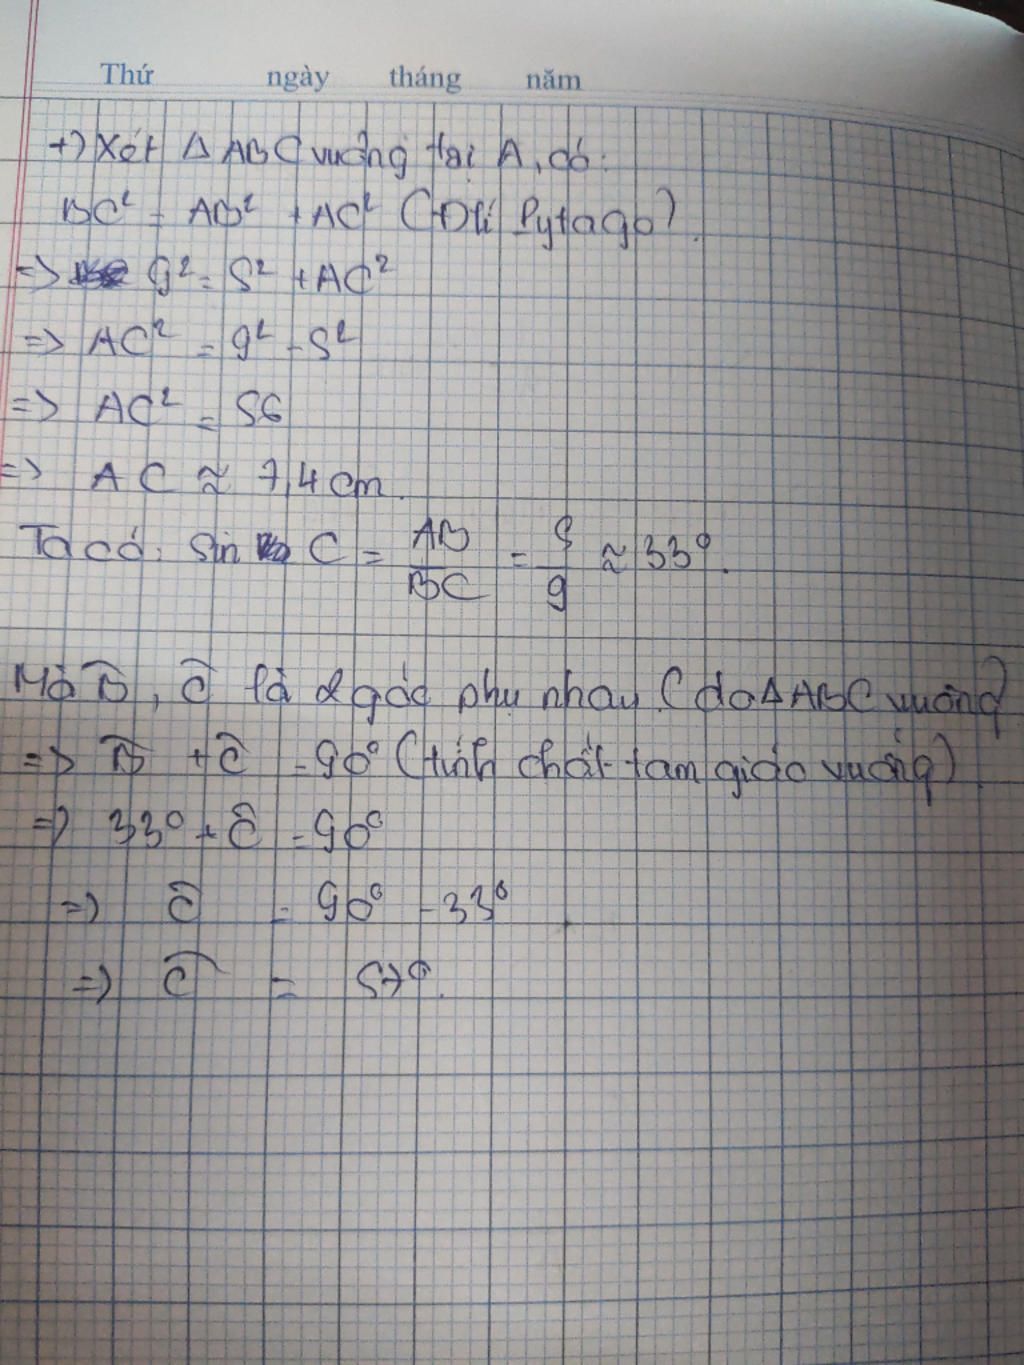 Thứ ngày tháng năm
+) Xét Δ ABC vuông tại A, có:
BC² = AB² + AC² (Đlí Pytago).
=> 9² = 5² + AC²
=> AC² = 9² - 5²
=> AC² = 56
=> AC ≈ 7,4 cm.
Ta có: Sin C = AB/BC = 5/9 ≈ 33°.
Mà B̂, Ĉ là 2 góc phụ nhau (do Δ ABC vuông)
=> B̂ + Ĉ = 90° (tính chất tam giác vuông)
=> 33° + Ĉ = 90°
=> Ĉ = 90° - 33°
=> Ĉ = 57°.